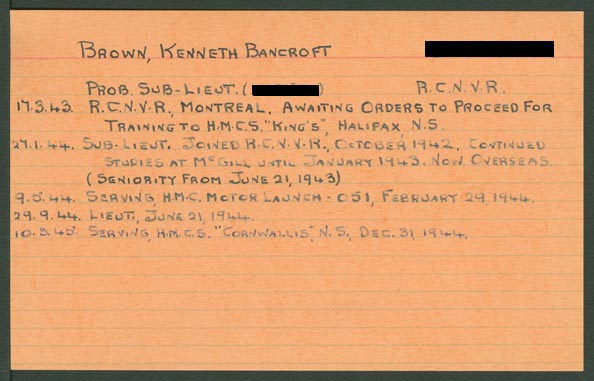 BROWN, KENNETH BANCROFT
PROB. SUB-LIEUT. ( ) R.C.N.V.R.
17.3.43. R.C.N.V.R., MONTREAL. AWAITING ORDERS TO PROCEED FOR
TRAINING TO H.M.C.S. "KING'S", HALIFAX, N.S.
27.1.44. SUB-LIEUT. JOINED R.C.N.V.R., OCTOBER, 1942. CONTINUED
STUDIES AT MCGILL UNTIL JANUARY 1943. NOW OVERSEAS.
(SENIORITY FROM JUNE 21, 1943)
9.5.44. SERVING, H.M.C. MOTOR LAUNCH - 051, FEBRUARY 29, 1944.
29.9.44. LIEUT., JUNE 21, 1944.
10.3.45. SERVING, H.M.C.S. "CORNWALLIS", N.S., DEC. 31, 1944.